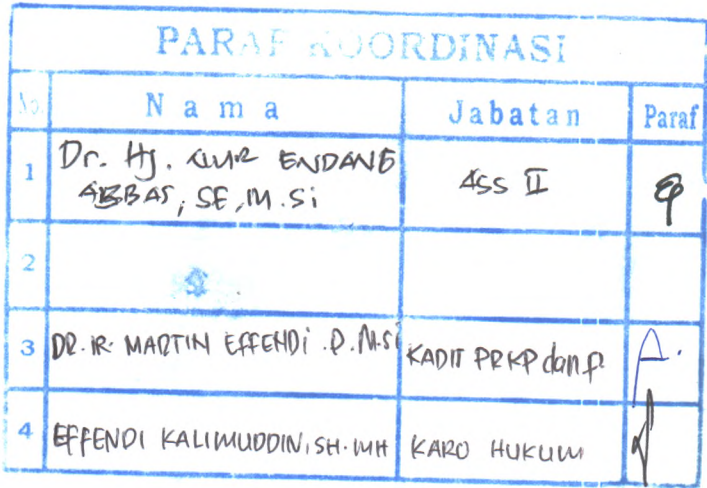 PARAF KOORDINASI
No. Nama Jabatan Paraf
1 Dr. Hj. NUR ENDANG
ABBAS, SE, M.Si ASS II
2
3 DR. IR. MARTIN EFFENDI .P. M.Si KADIT PRKP dan P.
4 EFFENDI KALIMUDDIN, SH. MH KARO HUKUM